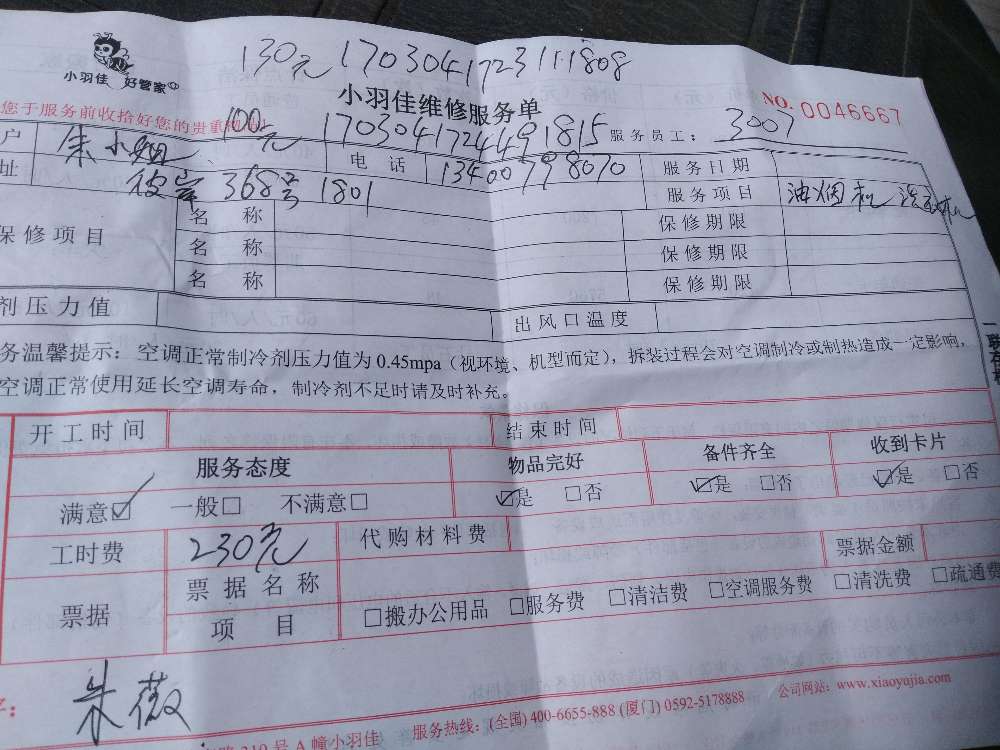 130元 1703041723111808
小羽佳 好管家
小羽佳维修服务单
NO. 0046667
您于服务前收拾好您的贵重物品
100元 1703041724491815
服务员工: 3007
户 朱小姐 电话 13400798070 服务日期
址 368号1801 服务项目 油烟机 洗衣机
保修项目 名称 保修期限
名称 保修期限
名称 保修期限
剂压力值 出风口温度
务温馨提示：空调正常制冷剂压力值为0.45mpa（视环境、机型而定），拆装过程会对空调制冷或制热造成一定影响，
空调正常使用延长空调寿命，制冷剂不足时请及时补充。
开工时间 结束时间
服务态度 物品完好 备件齐全 收到卡片
满意☑ 一般□ 不满意□ ☑是 □否 ☑是 □否 ☑是 □否
工时费 230元 代购材料费
票据 票据名称 票据金额
项目 □搬办公用品 □服务费 □清洁费 □空调服务费 □清洗费 □疏通费
朱薇
210号A幢小羽佳 服务热线：(全国) 400-6655-888 (厦门) 0592-5178888 公司网站：www.xiaoyujia.com